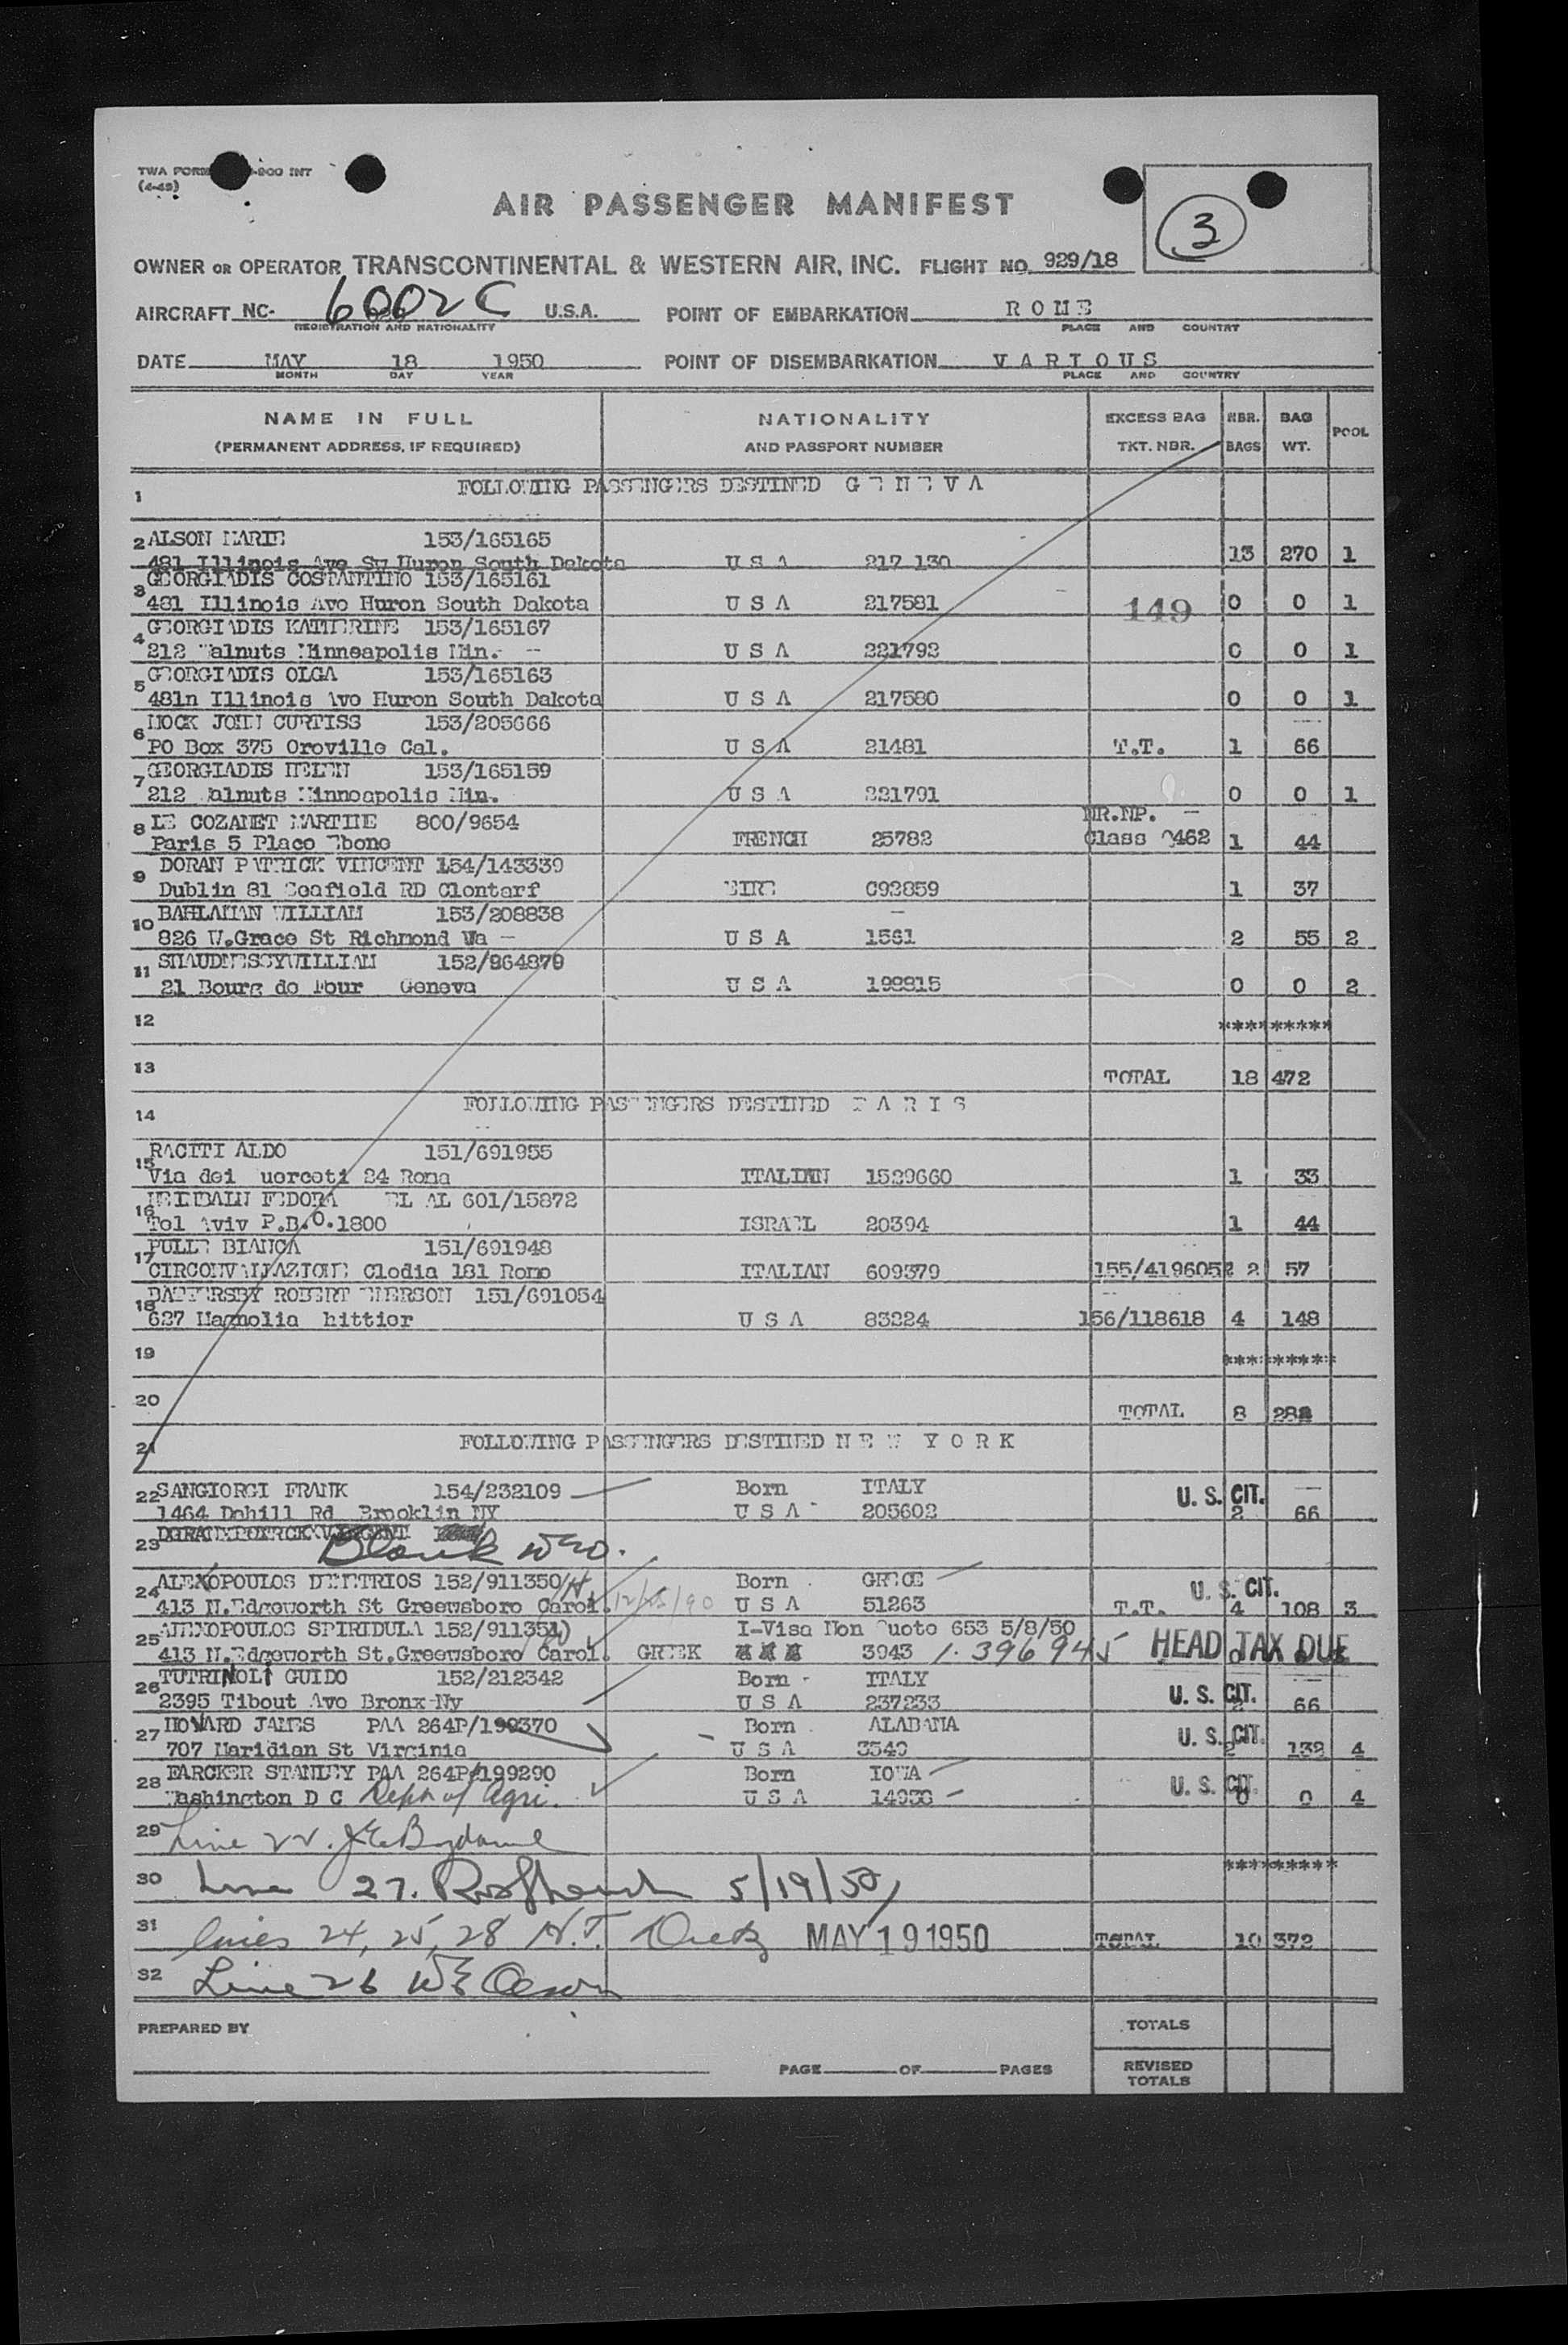 TWA FORM -200 INT
(4-49)
AIR PASSENGER MANIFEST
3
OWNER OR OPERATOR TRANSCONTINENTAL & WESTERN AIR, INC. FLIGHT NO. 929/18
AIRCRAFT NC- 6002C U.S.A. POINT OF EMBARKATION R O M E
REGISTRATION AND NATIONALITY PLACE AND COUNTRY
DATE MAY 18 1950 POINT OF DISEMBARKATION V A R I O U S
MONTH DAY YEAR PLACE AND COUNTRY
NAME IN FULL NATIONALITY EXCESS BAG NBR. BAG POOL
(PERMANENT ADDRESS, IF REQUIRED) AND PASSPORT NUMBER TKT. NBR. BAGS WT.
1 FOLLOWING PASSENGERS DESTINED G E N E V A
2 ALSON MARIE 153/165165
481 Illinois Ave Sw Huron South Dakota U S A 217 130 13 270 1
3 GEORGIADIS COSTANTINO 153/165161
481 Illinois Ave Huron South Dakota U S A 217581 149 0 0 1
4 GEORGIADIS KATHERINE 153/165167
212 Walnuts Minneapolis Min. -- U S A 221792 0 0 1
5 GEORGIADIS OLGA 153/165163
481n Illinois Ave Huron South Dakota U S A 217580 0 0 1
6 MOCK JOHN CURTISS 153/205666
PO Box 375 Oroville Cal. U S A 21481 T.T. 1 66
7 GEORGIADIS HELEN 153/165159
212 Walnuts Minneapolis Min. U S A 221791 0 0 1
8 LE COZANET MARTHE 800/9654 NR.NP. -
Paris 5 Place Ebone FRENCH 25782 Class 0462 1 44
9 DORAN PATRICK VINCENT 154/143339
Dublin 81 Seafield RD Clontarf EIRE C92859 1 37
10 BAHLAMAN WILLIAM 153/208838
826 W.Grace St Richmond Va - U S A 1561 2 55 2
11 SHAUDNESSYWILLIAM 152/964879
21 Bourg de Four Geneva U S A 198815 0 0 2
12 *********
13 TOTAL 18 472
14 FOLLOWING PASSENGERS DESTINED P A R I S
15 RACITI ALDO 151/691955
Via dei uerceti 24 Roma ITALIAN 1529660 1 33
16 FEDORA EL AL 601/15872
Tel Aviv P.B.O.1800 ISRAEL 20394 1 44
17 PULLE BIANCA 151/691948
CIRCONVALLAZIONE Clodia 181 Rome ITALIAN 609379 155/419605 2 57
18 BATTERSBY ROBERT EMERSON 151/691054
627 Magnolia hittier U S A 83224 156/118618 4 148
19 *********
20 TOTAL 8 282
21 FOLLOWING PASSENGERS DESTINED N E W Y O R K
22 SANGIORGI FRANK 154/232109 Born ITALY U. S. CIT.
1464 Dahill Rd Brooklin NY U S A - 205602 2 66
23 Blank
24 ALEXOPOULOS DEMETRIOS 152/911350 Born GREECE U. S. CIT.
413 N.Edgeworth St Greewsboro Carol. 12/25/90 U S A 51263 T.T. 4 108 3
25 ALEXOPOULOS SPIRIDULA 152/911351 I-Visa Non Quoto 653 5/8/50
413 N.Edgeworth St.Greewsboro Carol. GREEK 3943 1.396945 HEAD TAX DUE
26 TUTRINOLI GUIDO 152/212342 Born - ITALY
2395 Tibout Ave Bronx-Ny U S A 237233 U. S. CIT. 2 66
27 HOWARD JAMES PAA 264P/199370 Born ALABAMA
707 Maridian St Virginia U S A 3549 U. S. CIT. 2 132 4
28 FARCKER STANLEY PAA 264P/199290 Born IOWA
Washington D C Dept of Agri. U S A 14936 U. S. CIT. 0 0 4
29 Line 22.
30 Line 27. 5/19/50 *********
31 lines 24, 25, 28 N.T. MAY 19 1950 TOTAL 10 372
32 Line 26 WE Olson
PREPARED BY TOTALS
PAGE OF PAGES REVISED
TOTALS